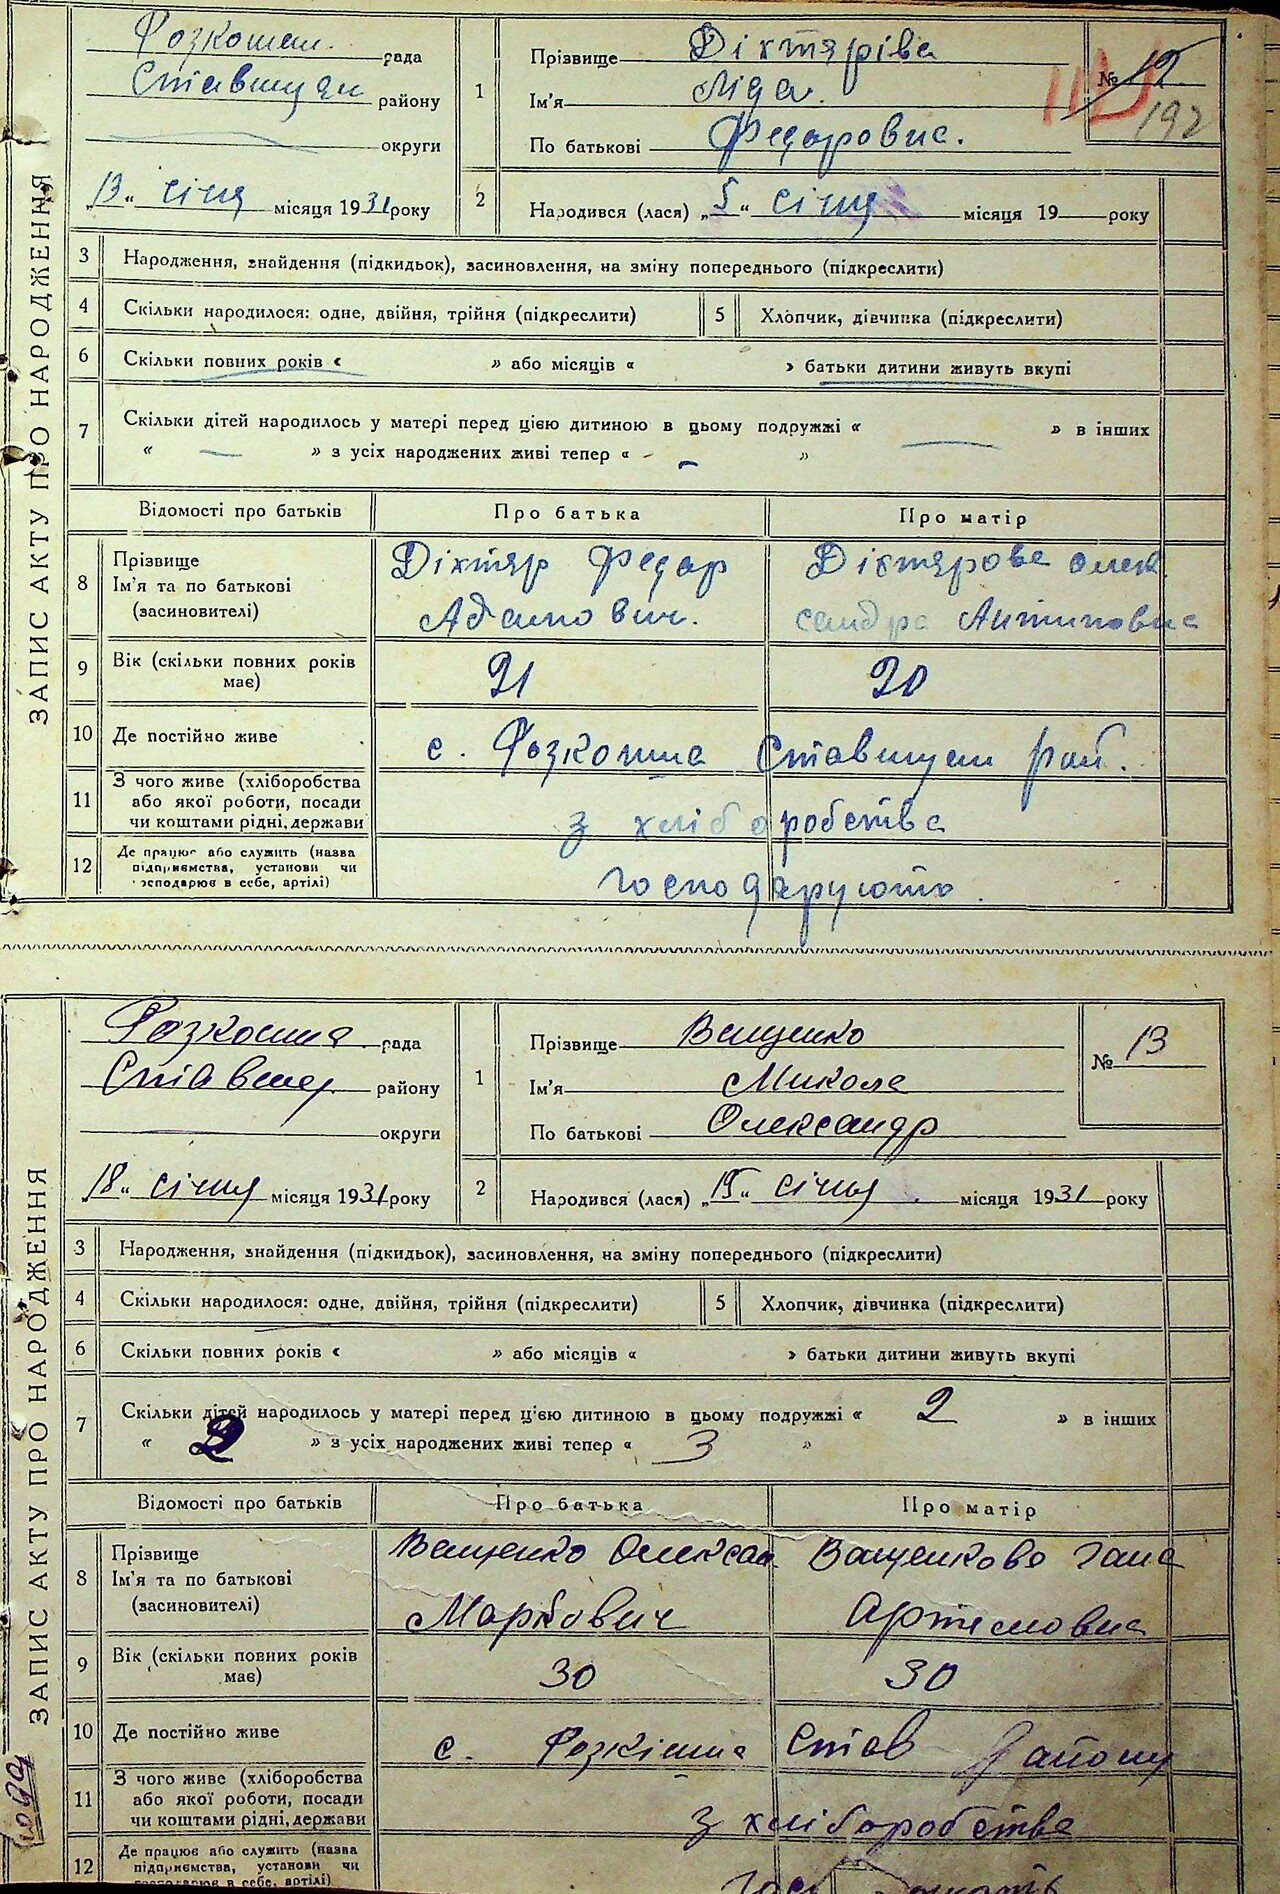 ЗАПИС АКТУ ПРО НАРОДЖЕННЯ
Розкошан. рада
Ставищан району
округи
„13“ січня місяця 1931 року
1
Прізвище Діхтярівa
Ім'я Ліда.
По батькові Федоровна.
№ 12
192
2
Народився (лася) „5“ січня місяця 19 року
3 Народження, знайдення (підкидьок), засиновлення, на зміну попереднього (підкреслити)
4 Скільки народилося: одне, двійня, трійня (підкреслити) 5 Хлопчик, дівчинка (підкреслити)
6 Скільки повних років « » або місяців « » батьки дитини живуть вкупі
7 Скільки дітей народилось у матері перед цією дитиною в цьому подружжі « — » в інших
« — » з усіх народжених живі тепер « - »
Відомості про батьків Про батька Про матір
8 Прізвище Ім'я та по батькові (засиновителі)
Діхтяр Федор
Адамович.
Діхтярова Олек
сандра Антиповна
9 Вік (скільки повних років має) 21 20
10 Де постійно живе с. Розкошна Ставищан рай.
11 З чого живе (хліборобства або якої роботи, посади чи коштами рідні, держави з хліборобства
12 Де працює або служить (назва підприємства, установи чи господарює в себе, артілі) господарують.
ЗАПИС АКТУ ПРО НАРОДЖЕННЯ
Розкошна рада
Ставищ. району
округи
18“ січня місяця 1931 року
1
Прізвище Ващенко
Ім'я Микола
По батькові Олександр
№ 13
2
Народився (лася) „15“ січня місяця 1931 року
3 Народження, знайдення (підкидьок), засиновлення, на зміну попереднього (підкреслити)
4 Скільки народилося: одне, двійня, трійня (підкреслити) 5 Хлопчик, дівчинка (підкреслити)
6 Скільки повних років « » або місяців « » батьки дитини живуть вкупі
7 Скільки дітей народилось у матері перед цією дитиною в цьому подружжі « 2 » в інших
« 2 » з усіх народжених живі тепер « 3 »
Відомості про батьків Про батька Про матір
8 Прізвище Ім'я та по батькові (засиновителі)
Ващенко Олексан
Маркович
Ващенкова Гана
Артемовна
9 Вік (скільки повних років має) 30 30
10 Де постійно живе с. Розкішна Став району
11 З чого живе (хліборобства або якої роботи, посади чи коштами рідні, держави з хліборобства
12 Де працює або служить (назва підприємства, установи чи господарює в себе, артілі)